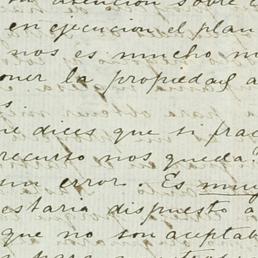 atención sobre
en ejecucion el plan
nos es mucho m
oner la propiedad a
s
ue dices que si frac
recurso nos queda?
un error. Es muy
estaria dispuesto a
que no son acepta